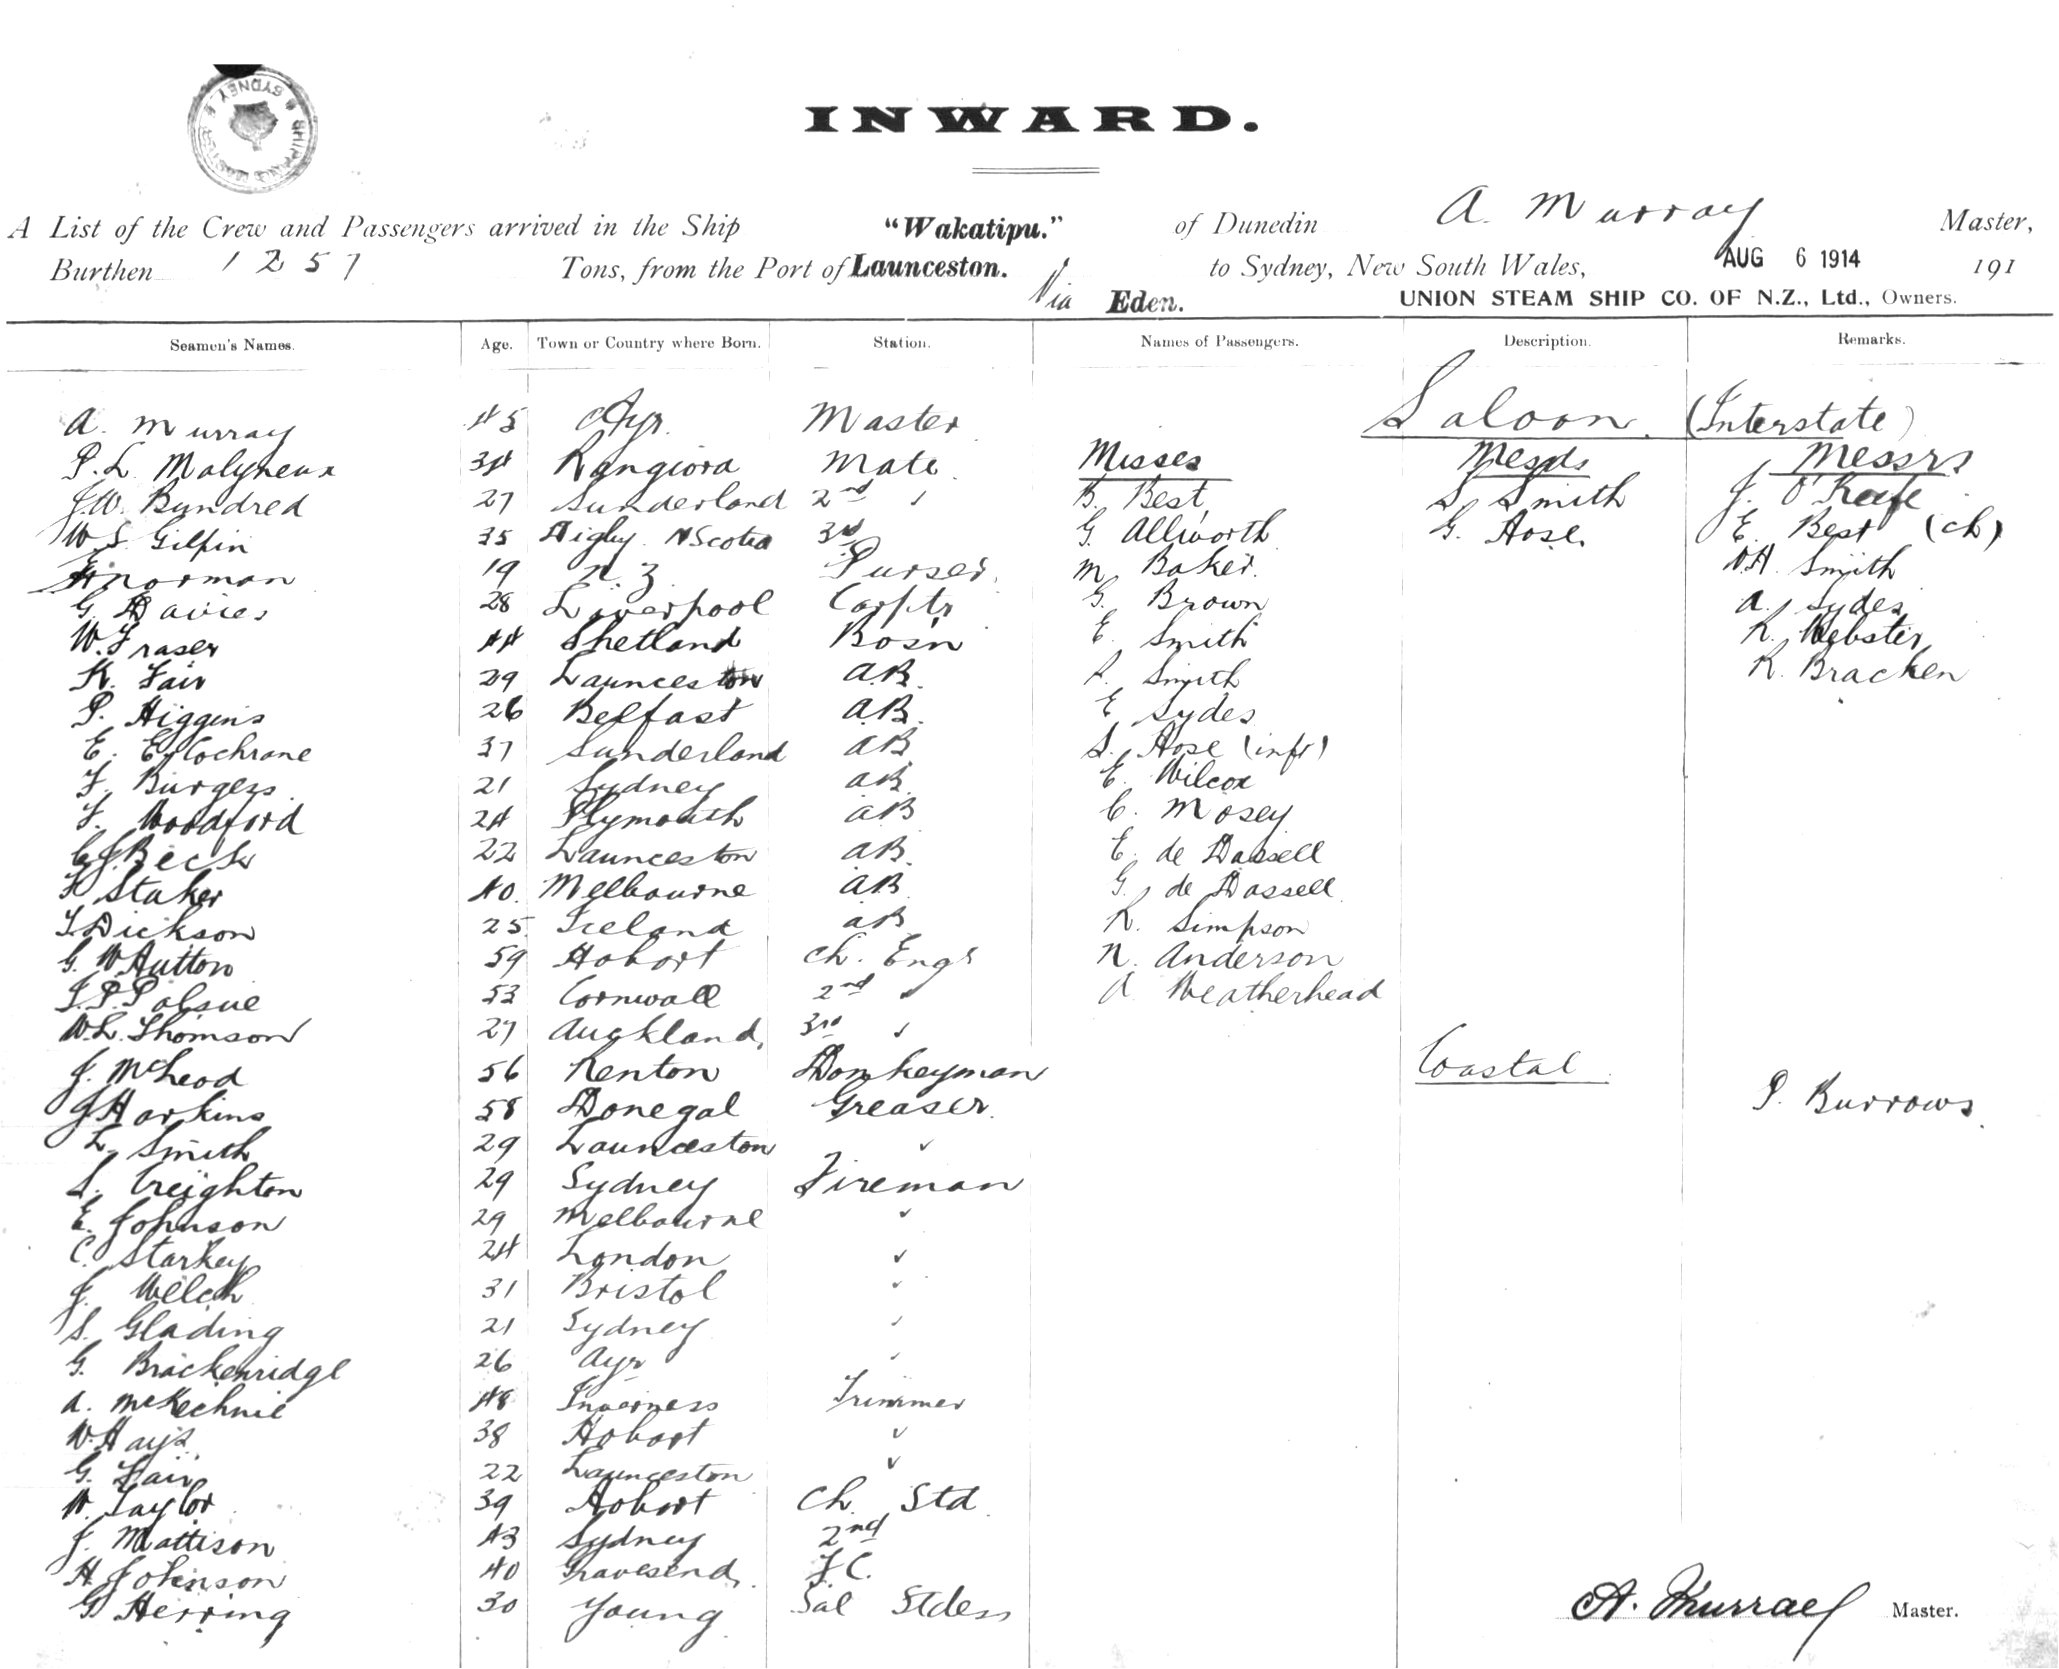 SYDNEY
INWARD.
A List of the Crew and Passengers arrived in the Ship "Wakatipu." of Dunedin A. Murray Master,
Burthen 1257 Tons, from the Port of Launceston. to Sydney, New South Wales, AUG 6 1914 191
Via Eden. UNION STEAM SHIP CO. OF N.Z., Ltd., Owners.
Seamen's Names. Age. Town or Country where Born. Station. Names of Passengers. Description. Remarks.
Saloon. (Interstate)
A. Murray 45 Ayr. Master
P. L. Molyneux 34 Rangiora Mate Misses Mesds Messrs
J. W. Bundred 27 Sunderland 2nd " B. Best, S. Smith J. O'Keefe
W. S. Gilpin 35 Digby N Scotia 3rd G. Allworth G. Hose. E. Best (ch)
Norman 19 N. Z. Purser. M. Baker. W H. Smith
G. Davies 28 Liverpool Carptr G. Brown A. Sydes
W. Fraser 44 Shetland Bosn E. Smith R. Webster
K. Fair 29 Launceston A.B. Smith R. Bracken
P. Higgins 26 Belfast A.B. E. Sydes
E. E. Cochrane 37 Sunderland AB S. Hose (inft)
F. Burgess 21 Sydney AB E. Wilcox
F. Woodford 24 Plymouth AB C. Mosey
C. J. Beck 22 Launceston AB. E. de Dassell
F Staker 40. Melbourne AB G. de Dassell
T. Dickson 25. Iceland AB R. Simpson
G. W Hutton 59 Hobart Ch. Engr N. Anderson
J. P. Polsue 53 Cornwall 2nd " A Weatherhead
W. L. Thomson 27 Auckland, 3rd "
Coastal
J. McLeod 56 Renton Donkeyman
J Harkins 58 Donegal Greaser. P. Burrows.
L. Smith 29 Launceston "
S. Creighton 29 Sydney Fireman
E. Johnson 29 Melbourne "
C. Starkey 24 London "
J. Welch 31 Bristol "
S. Glading 21 Sydney "
G. Brackenridge 26 Ayr "
A. McKechnie 48 Inverness Trimmer
W. Hays 38 Hobart "
G. Fair 22 Launceston "
W. Taylor 39 Hobart Ch. Std.
J. Mattison 43 Sydney 2nd
H Johnson 40 Gravesend. F. C.
G. Herring 30 Young Sal Stdess
A. Murray Master.